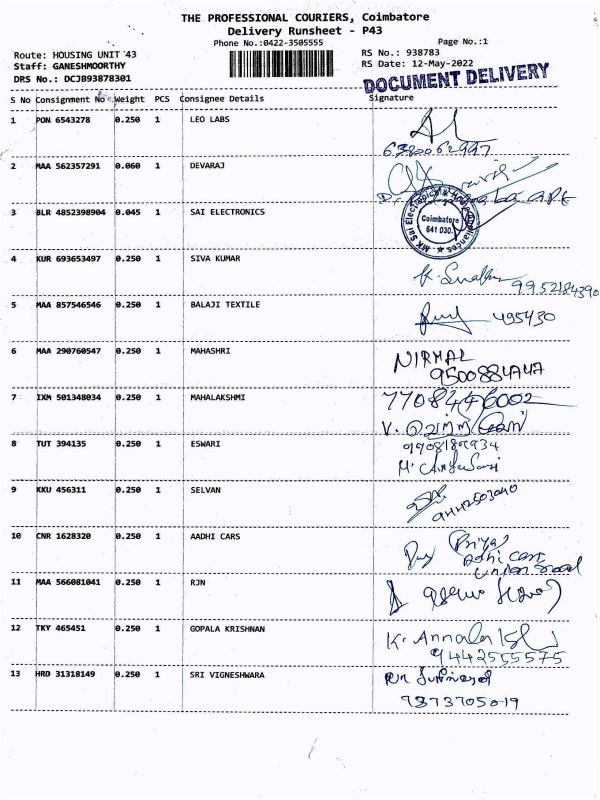 THE PROFESSIONAL COURIERS, Coimbatore
Delivery Runsheet - P43
Phone No.:0422-3505555
Page No.:1
Route: HOUSING UNIT 43
RS No.: 938783
Staff: GANESHMOORTHY
RS Date: 12-May-2022
DRS No.: DCJB93878301
DOCUMENT DELIVERY
S No Consignment No Weight PCS Consignee Details Signature
1 PON 6543278 0.250 1 LEO LABS
6380062997
2 MAA 562357291 0.060 1 DEVARAJ
3 BLR 4852398904 0.045 1 SAI ELECTRONICS
MK Sai Electronics & Home Appliances
Coimbatore
641 030.
4 KUR 693653497 0.250 1 SIVA KUMAR
9952184390
5 MAA 857546546 0.250 1 BALAJI TEXTILE
495430
6 MAA 290760547 0.250 1 MAHASHRI NIRMAL
9500884747
7 IXM 501348034 0.250 1 MAHALAKSHMI 7708446002
8 TUT 394135 0.250 1 ESWARI
9 KKU 456311 0.250 1 SELVAN
9442503040
10 CNR 1628320 0.250 1 AADHI CARS Priya
Adhi cars
union road
11 MAA 566081041 0.250 1 RJN
12 TKY 465451 0.250 1 GOPALA KRISHNAN
9442555575
13 HRD 31318149 0.250 1 SRI VIGNESHWARA
9373705019